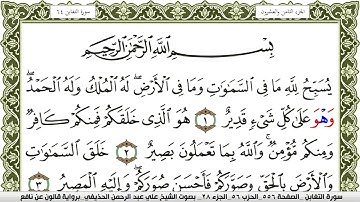 الجزء الثامن والعشرون
سورة التغابن ٦٤
بِسْمِ اللَّهِ الرَّحْمَٰنِ الرَّحِيمِ
يُسَبِّحُ لِلَّهِ مَا فِي السَّمَٰوَٰتِ وَمَا فِي الْأَرْضِ لَهُ الْمُلْكُ وَلَهُ الْحَمْدُ
وَهُوَ عَلَىٰ كُلِّ شَيْءٍ قَدِيرٌ ١ هُوَ الَّذِي خَلَقَكُمْ فَمِنكُمْ كَافِرٌ
وَمِنكُم مُّؤْمِنٌ وَاللَّهُ بِمَا تَعْمَلُونَ بَصِيرٌ ٢ خَلَقَ السَّمَٰوَٰتِ
وَالْأَرْضَ بِالْحَقِّ وَصَوَّرَكُمْ فَأَحْسَنَ صُوَرَكُمْ وَإِلَيْهِ الْمَصِيرُ ٣
سورة التغابن _ الصفحة ٥٥٦ _ الحزب ٥٦ _ الجزء ٢٨ _ بصوت الشيخ علي عبد الرحمن الحذيفي _ برواية قالون عن نافع